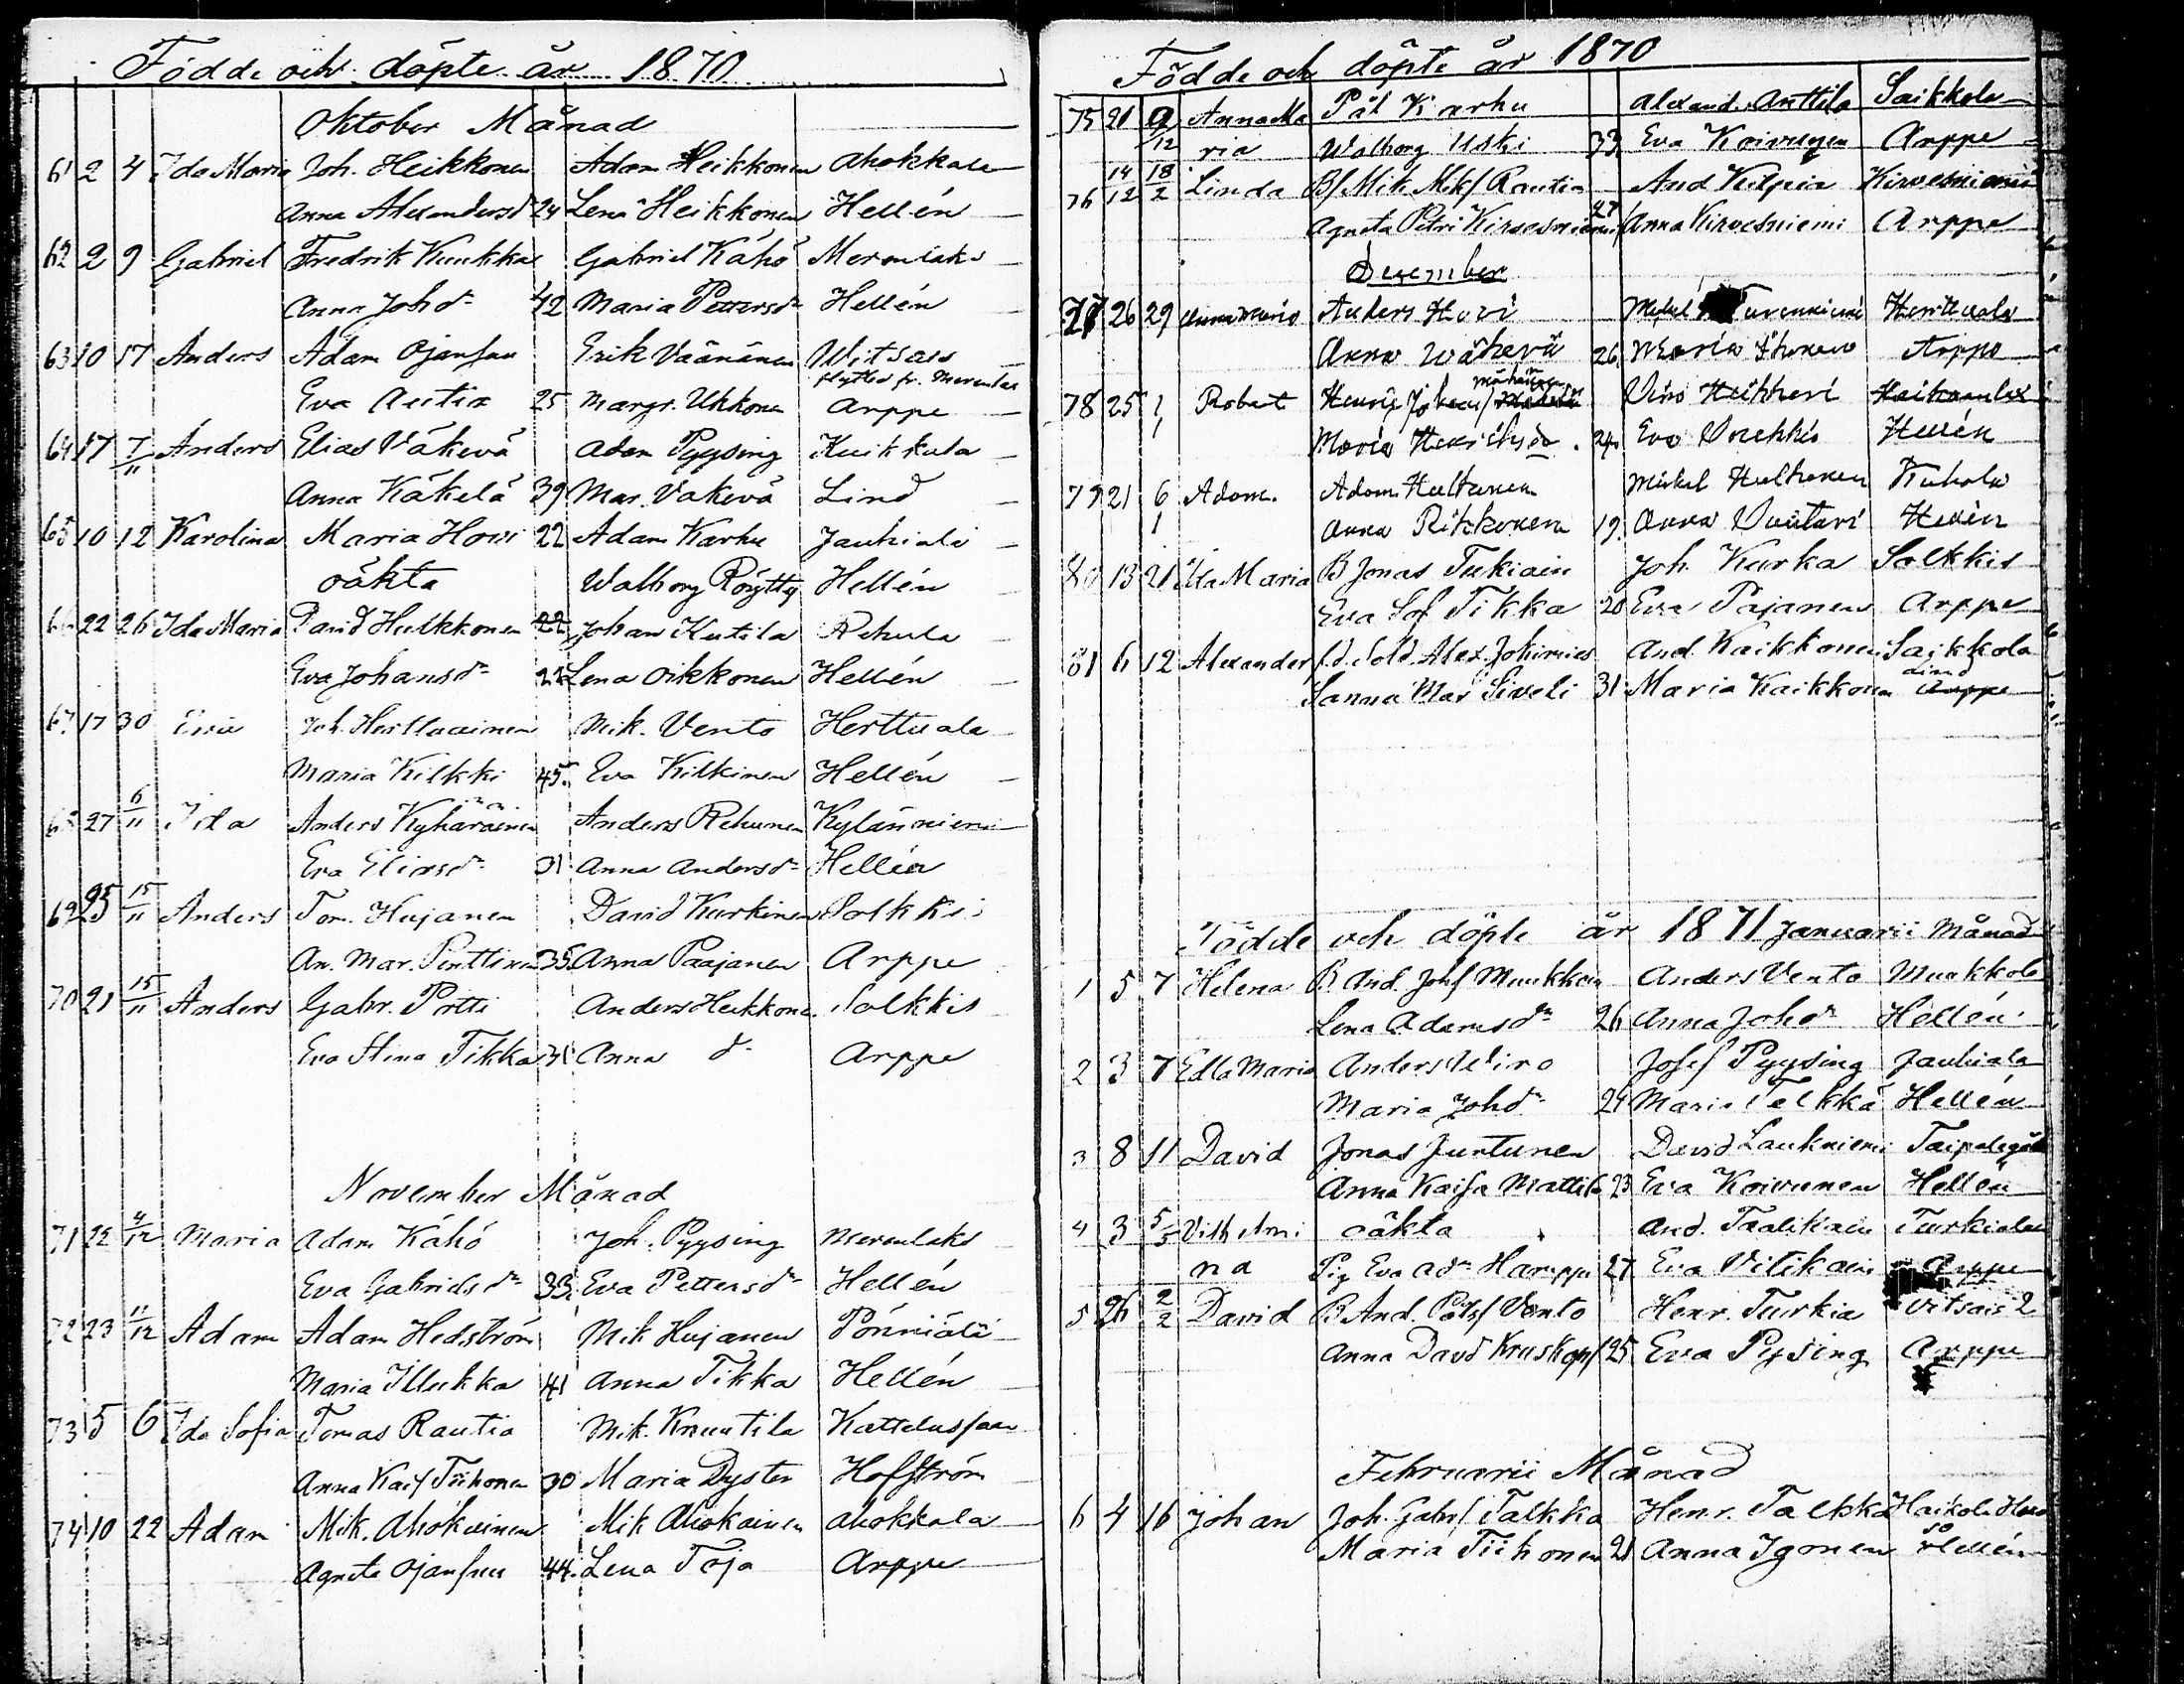 Födde och döpte år 1870
Oktober Månad
61 2 4 Ida Maria Joh. Heikkonen Adam Heikkonen Ahokkala
Anna Alexandersdr 24 Lena Heikkonen Hellén
62 2 9 Gabriel Fredrik Kuukka Gabriel Kähö Meronlaks
Anna Johdr 42 Maria Pettersdr Hellén
63 10 17 Anders Adam Ojansuu Erik Väänänen Witsais
flyttad fr. Meronlax
Eva Autia 25 Margr. Ukkonen Arppe
64 17 7/11 Anders Elias Väkevä Adam Pyysing Kuikkala
Anna Käkelä 39 Mar. Vakevä Lind
65 10 12 Karolina Maria Howi 22 Adam Karhu Jauhiala
oäkta Walborg Röytty Hellén
66 22 26 Ida Maria David Hulkkonen 22 Johan Kutila Rehula
Eva Johansdr 22 Lena Oikkonen Hellén
67 17 30 Eva Joh. Herttuainen Mik. Vento Herttuala
Maria Kilkki 45. Eva Kilkinen Hellén
68 27 6/11 Ida Anders Kyhäräinen Anders Rehunen Kyläniemi
Eva Eliasdr 31 Anna Andersdr Hellén
69 25 15/11 Anders Tom. Hujanen David Kurkinen Solkkis
An. Mar. Penttinen 35. Anna Paajanen Arppe
70 21 15/11 Anders Gabr. Pötti Anders Heikkone. Solkkis
Eva Stina Tikka 31 Anna dr Arppe
November Månad
71 22 4/12 Maria Adam Kähö Joh. Pyysing Meronlaks
Eva Gabrielsdr 33. Eva Pettersdr Hellén
72 23 11/12 Adam Adam Hedström Mik Hujanen Pönniälä
Maria Illukka 41 Anna Tikka Hellén
73 5 6 Ida Sofia Tomas Rautia Mik. Knuutila Kattelussaar
Anna Kais Tiihonen 30 Maria Dyster Hofström
74 10 22 Adam Mik. Ahokainen Mik Ahokainen Ahokkala
Agneta Ojansuu 44. Lena Toja Arppe
Födde och döpte år 1870
75 21 9/12 Anna Ma Pål Karhu Alexand. Anttila Saikkola
ria Walborg Uski 33 Eva Koivunen Arppe
76 14/12 18/2 Linda B/ Mik Mik/ Rautia And Kilpia Kirvesniemi
Agneta Petri Kirvesniemi 27 Anna Kirvesniemi Arppe
December
77 26 29 Anna Maria Anders Hovi Mikel Turunen Herttuala
Anna Wäkevä 26. Maria Ihonen Arppe
78 25 1/1 Robert Henrik Jokeus/ Heikkeri
Maria Henriksdr 24. Eva Hellén
79 21 6/1 Adam. Adam Hultunen Mikkel Hultonen Kuhala
Anna Rikkonen 19. Anna Vuutari Hellén
80 13 21 Ida Maria B Jonas Tukiain Joh. Kurka Solkkis
Eva Sof Tikka 20 Eva Pajanen Arppe
81 6 12 Alexander f.d. Sold. Alex. Johimies And. Kaikkonen Saikkola
Sanna Mar Siveli 31 Maria Kaikkonen Lind Arppe
Födde och döpte år 1871 Januarii Månad
1 5 7 Helena B. And. Johs Muukkain Anders Vento Muukkola
Lena Adamsdr 26 Anna Johdr Hellén
2 3 7 Edla Maria Anders Wiro Josef Pyysing Jauhiala
Maria Johdr 24 Maria Talkka Hellén
3 8 11 David Jonas Juntunen David Laukniemi Taipalegård
Anna Kaisa Mattila 23 Eva Koivunen Hellén
4 3 5/5 Vilhelmi oäkta And. Taalikain Turkiala
na Pig Eva Adr Hamppu 27 Eva Vilikain Arppe
5 26 2/2 David B And. Påls/ Vento Henr. Turkia Vitsais 2
Anna David Kruskopf 25 Eva Pysing Arppe
Februarii Månad
6 4 16 Johan Joh. Gabr/ Talkka Henr. Talkka Haikola
Maria Tiihonen 21 Anna Igonen Hellén